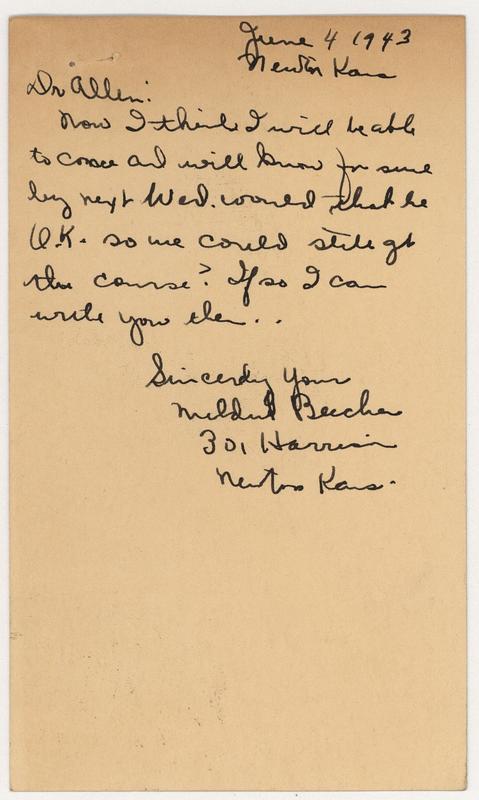 June 4 1943
Newton Kans
Dr Allen:
Now I think I will be able
to come and will know for sure
by next Wed. would that be
O.K. so we could still get
the course? If so I can
write you then..
Sincerely Yours
Mildred Beecher
301 Harrison
Newton Kans.